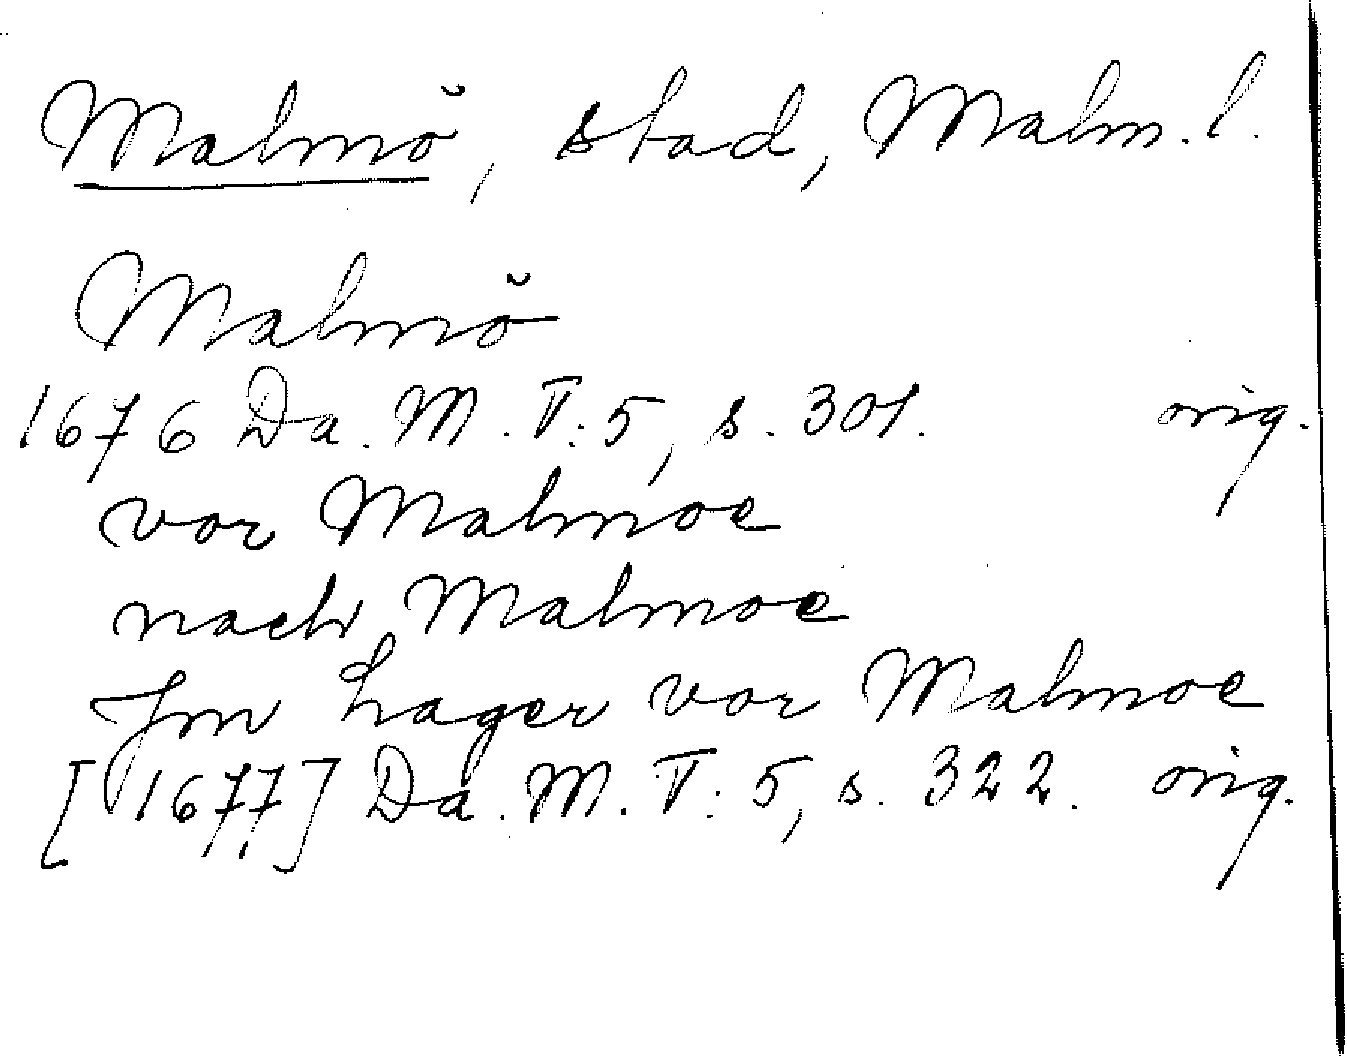 Malmö, stad, Malm. l.
Malmö
1676 Da. M. V: 5, s. 301. orig.
vor Malmoe
nach Malmoe
Im Lager vor Malmoe
[1677] Da. M. V: 5, s. 322. orig.